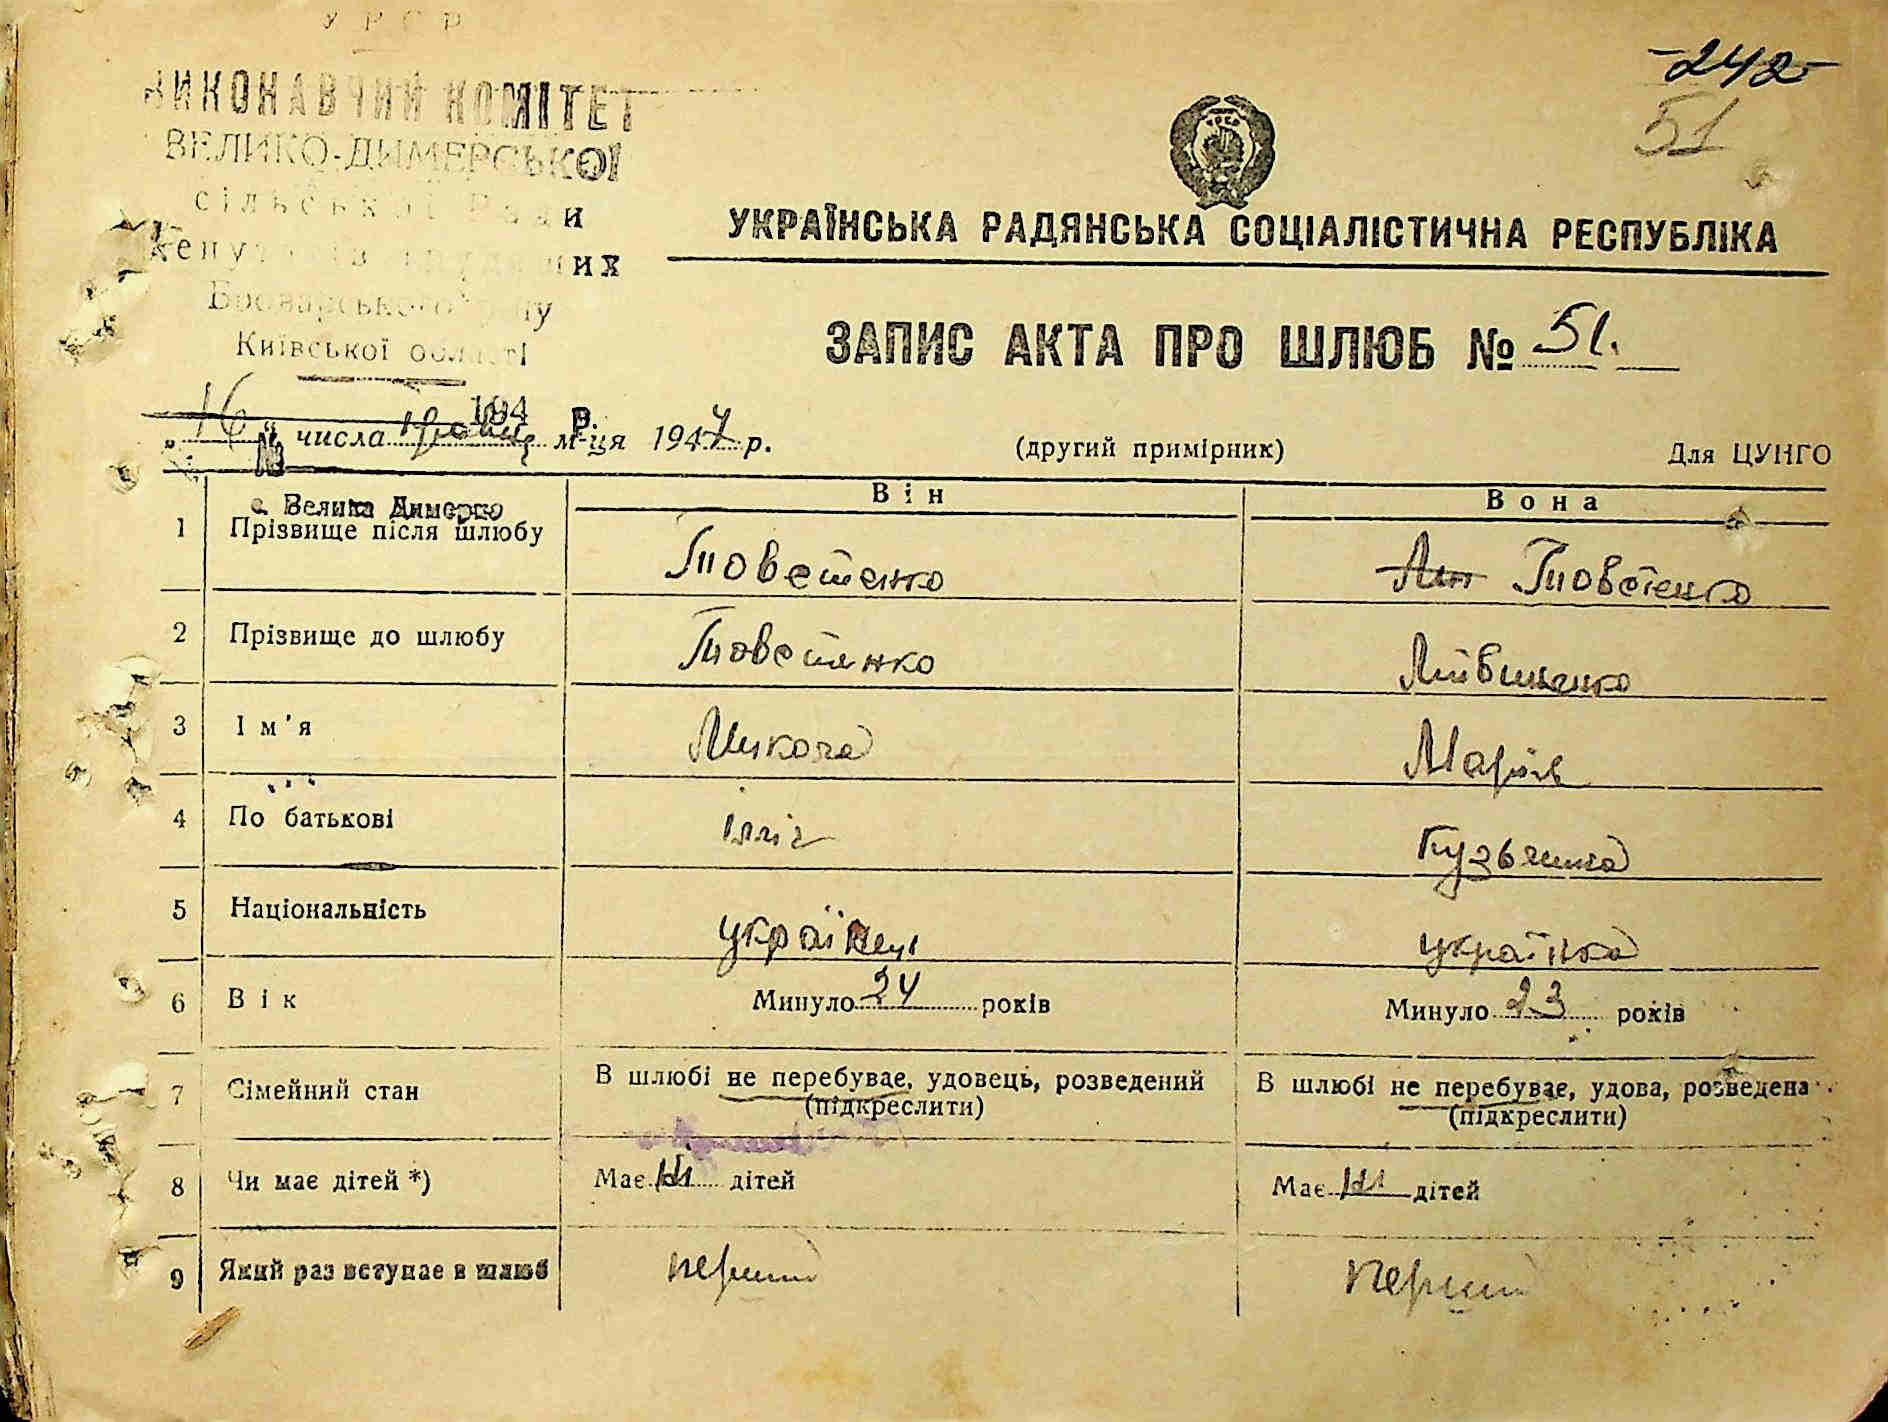 УРСР
ВИКОНАВЧИЙ КОМІТЕТ
ВЕЛИКО-ДИМЕРСЬКОЇ
сільської Ради
Броварського р-ну
Київської області
194 р.
№
с. Велика Димерка
-242-
51
УКРАЇНСЬКА РАДЯНСЬКА СОЦІАЛІСТИЧНА РЕСПУБЛІКА
ЗАПИС АКТА ПРО ШЛЮБ № 51.
„16“ числа м-ця 1947 р.
(другий примірник)
Для ЦУНГО
Він
Вона
1 Прізвище після шлюбу Товстенко Товстенко
2 Прізвище до шлюбу Товстенко
3 Ім'я Микола Марія
4 По батькові Ілліч Кузьмівна
5 Національність українец українка
6 Вік Минуло 24 років Минуло 23 років
7 Сімейний стан В шлюбі не перебуває, удовець, розведений (підкреслити) В шлюбі не перебуває, удова, розведена (підкреслити)
8 Чи має дітей *) Має ні дітей Має ні дітей
9 Який раз вступає в шлюб перший перший